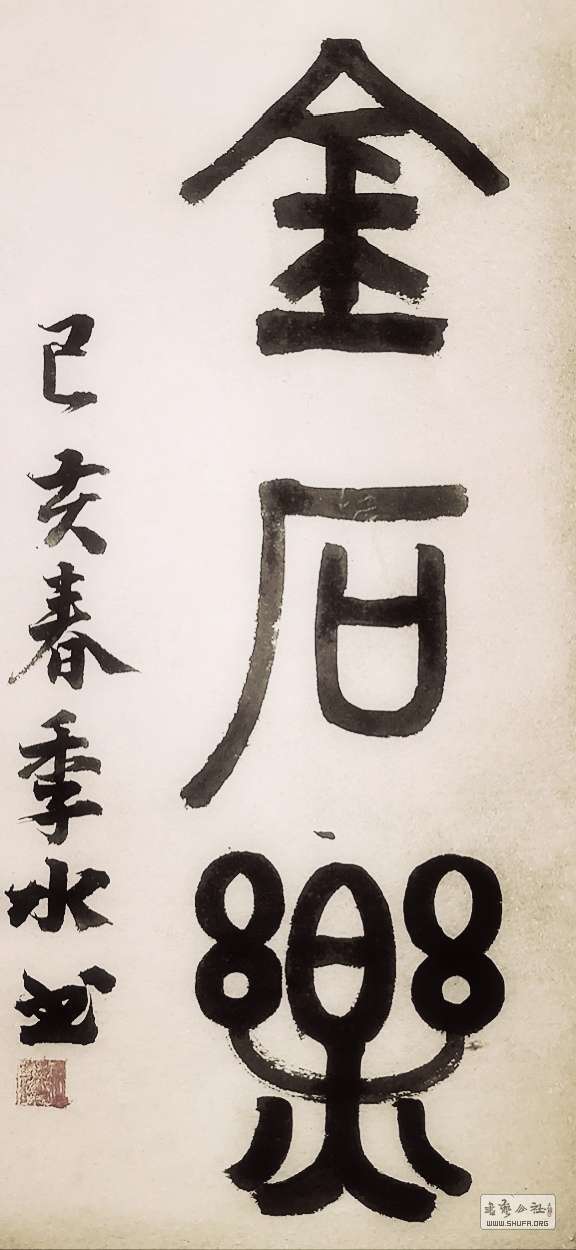 金石樂
己亥春季水書
書藝公社
WWW.SHUFA.ORG